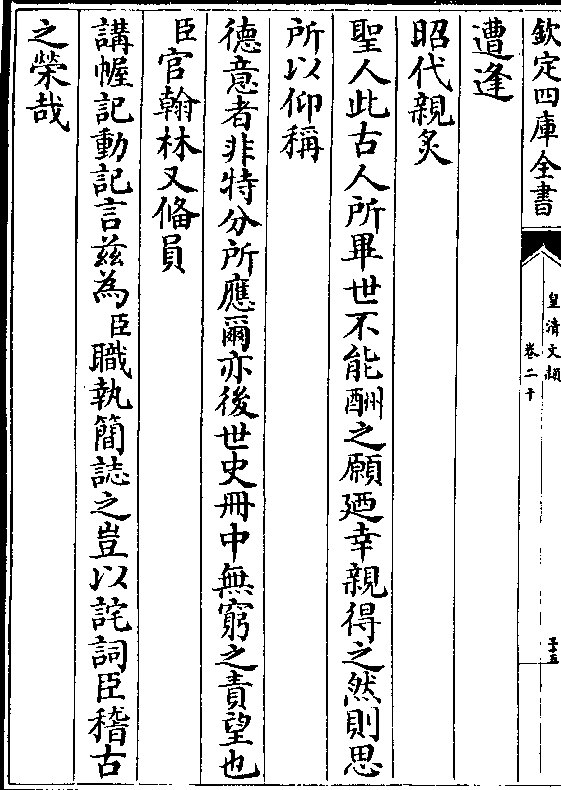 欽定四庫全書
皇清文穎
卷二十
遭逢
昭代親炙
聖人此古人所畢世不能酬之願廼幸親得之然則思
所以仰稱
德意者非特分所應爾亦後世史冊中無窮之責望也
臣官翰林又偹員
講幄記動記言兹為臣職執簡誌之豈以詫詞臣稽古
之榮哉